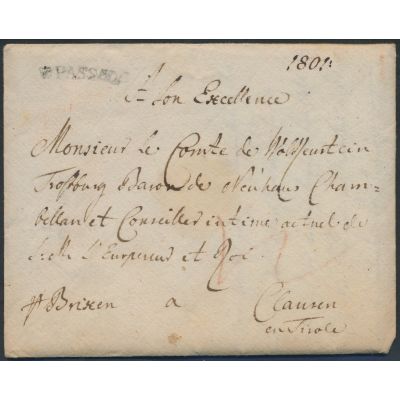 1801:
v. PASSAU
à Son Excellence
Monsieur le Comte de Wolkenstein
Trostburg Baron de Neuhaus Cham=
bellan et Conseiller intime actuel de
S: M: L'Empereur et Roi
pr Brixen a Clausen
en Tirole